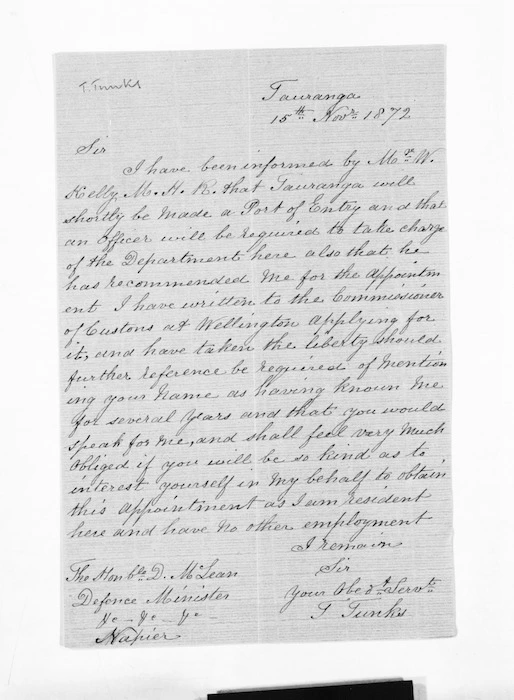 T. Tunks
Tauranga
15th Novr 1872
Sir
I have been informed by Mr W.
Kelly M. H. R. that Tauranga will
shortly be made a Port of Entry and that
an Officer will be required to take charge
of the Department here also that he
has recommended me for the appointm
ent I have written to the Commissioner
of Customs at Wellington applying for
it, and have taken the liberty should
further reference be required of mention
ing your Name as having known me
for several years and that you would
speak for me, and shall feel very much
obliged if you will be so kind as to
interest yourself in my behalf to obtain
this appointment as I am resident
here and have no other employment
I remain
Sir
Your Obedt Servt
T Tunks
The Honble D. McLean
Defence Minister
&c - &c - &c -
Napier